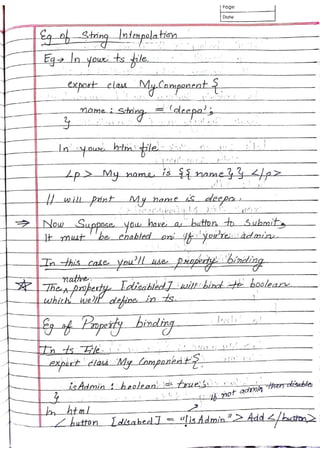 Page:
Date:
Eg of String Interpolation
Eg → In your ts file.
export class My Component {
name : string = 'deepa';
}
In your htm file
<p> My name is {{ name }} </p>
// will print My name is deepa.
⇒ Now Suppose you have a button to submit,
It must be enabled on if you're admin.
In this case you'll use property binding
☆ The native property [disabled] will bind to boolean
which we'll define in ts.
Eg of Property binding
In ts File
export class My Component {
isAdmin : boolean = true;
}
if not admin than disable
In html
< button [disabed] = "!is Admin"> Add </button>